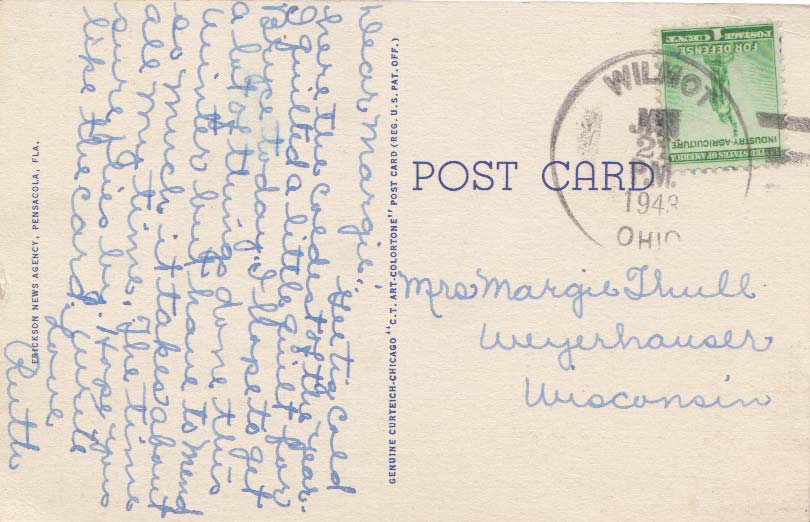 Dear Margie,
Gee its cold
here the coldest of the year.
I quilted a little quilt for
Bruce to day. I hope to get
a lot of things done this
winter but have to mend
so much it takes about
all my time. The time
sure flies by. Hope you
like the card. Write
Love
Ruth
ERICKSON NEWS AGENCY, PENSACOLA, FLA.
GENUINE CURTEICH-CHICAGO "C.T. ART-COLORTONE" POST CARD (REG. U.S. PAT. OFF.)
POST CARD
WILMOT
JAN
2
PM
1943
OHIO
UNITED STATES OF AMERICA
INDUSTRY-AGRICULTURE
FOR DEFENSE
POSTAGE 1 CENT
Mrs Margie Thull
Weyerhauser
Wisconsin